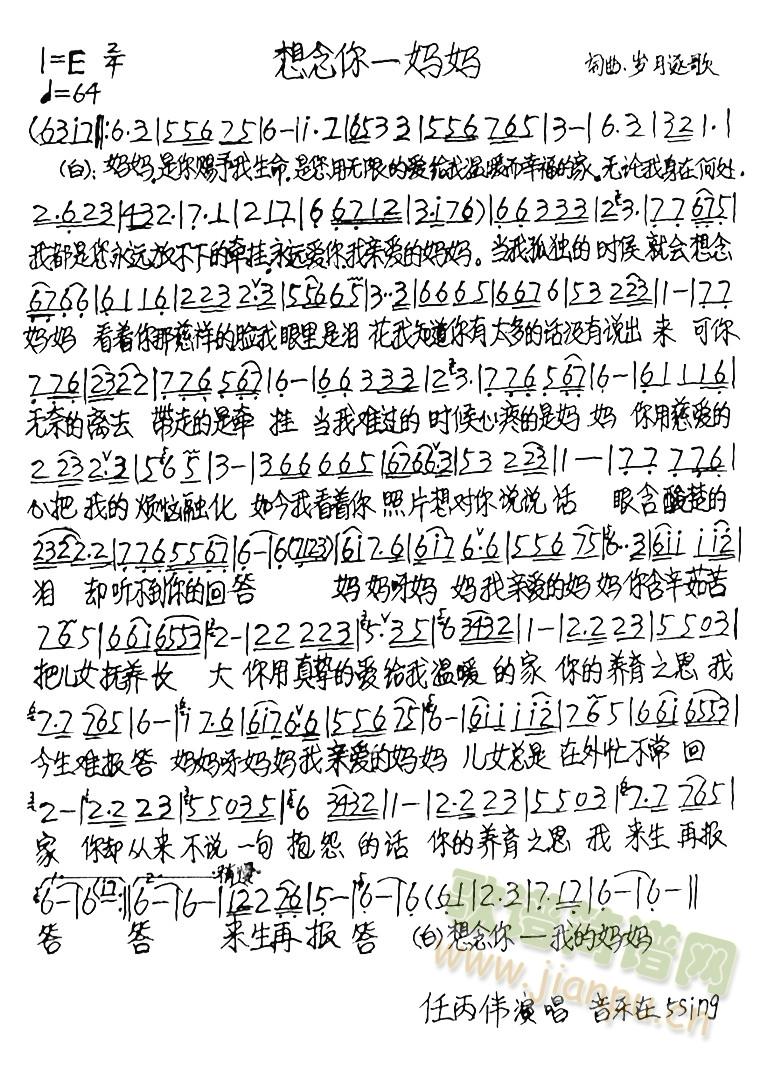 1=E 2/4 想念你一妈妈 词曲.岁月逐歌
♩=64
(6 3 i 7‖:6·3|5 5 6 7 5|6-|i·7|6 5 3 3|5 5 6 7 6 5|3-|6·3|3 2 1·1|
(白):妈妈.是你赐予我生命.是您用无限的爱给我温暖而幸福的家.无论我身在何处.
2·6 2 3|4 3 2·|7·1|2 1 7|6 6 7 1 2|3·i 7 6)|6 6 3 3 3|2 3·|7 7 6 7 5|
我都是您永远放不下的牵挂.永远爱你.我亲爱的妈妈。当我孤独的时侯就会想念
6 7 6 6|6 1 1 6|2 2 3 2·3|5 5 6 6 5|3··3|6 6 6 5|6 6 7 6|5 3 2 2 3|1-|7 7|
妈妈 看着你那慈祥的脸我眼里是泪花我知道你有太多的话没有说出来 可你
7 7 6|2 3 2 2|7 7 6 5 6 7|6-|6 6 3 3 3|2 3·|7 7 6 5 6 7|6-|6 1 1 1 6|
无奈的离去 带走的是牵挂 当我难过的时候心疼的是妈妈 你用慈爱的
2 2 3 2·3|5 6 5|3-|3 6 6 6 6 6 5|6 7 6 6·3|5 3 2 2 3|1-|7 7 7 7 6|
心把我的烦恼融化 如今我看着你照片想对你说说话 眼含酸楚的
2 3 2 2·2|7 7 6 5 5 6 7|6-|6(7 1 2 3)|6 i 7·6|6 i 7 6·6|5 5 6 7 5|6··3|6 i i i i 2|
泪 却听不到你的回答 妈妈呀妈妈我亲爱的妈妈你含辛茹苦
7 6 5|6 6 i 6 5 5 3|2-|2 2 2 2 2 3|5·3 5|6 3 4 3 2|1-|2·2 2 3|5 5 0 3|
把儿女抚养长大 你用真挚的爱给我温暖的家 你的养育之恩我
7·7 7 6 5|6-|i 7·6|6 i 7 6·6|5 5 6 7 5|6-|6 i i i i 2|7 6 5|6 6 i 6 5 5 3|
今生难报答 妈妈呀妈妈我亲爱的妈妈 儿女总是在外忙不常回
2-|2·2 2 3|5 5 0 3 5|6 3 4 3 2|1-|2·2 2 3|5 5 0 3|7·7 7 6 5|
家 你却从来不说一句抱怨的话 你的养育之恩我来生再报
1. 2. 稍慢
6-|6(1 7:‖6-|6-|1 2 2 7 6|5-|6-|6(6 1|2·3|7·1 7|6-|6-‖
答 答 来生再报答 (白)想念你一我的妈妈
歌谱简谱网
www.jianpu.cn
任丙伟演唱 音乐在5sing